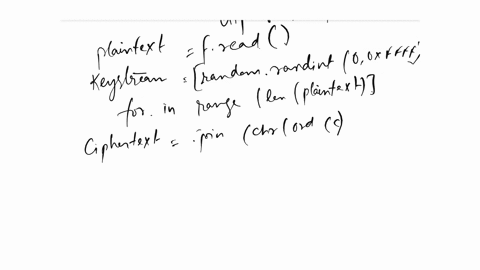 plaintext = f.read ()
Keystream = [random.randint (0, 0xffff)
for. in range (len (plaintext)]
Ciphertext = .join (chr (ord (c)